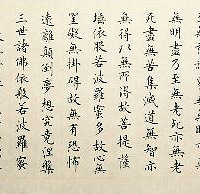 無明盡乃至無老死亦無老
死盡無苦集滅道無智亦
無得以無所得故菩提薩
埵依般若波羅蜜多故心無
罣礙無掛碍故無有恐怖
遠離顛倒夢想究竟涅槃
三世諸佛依般若波羅蜜